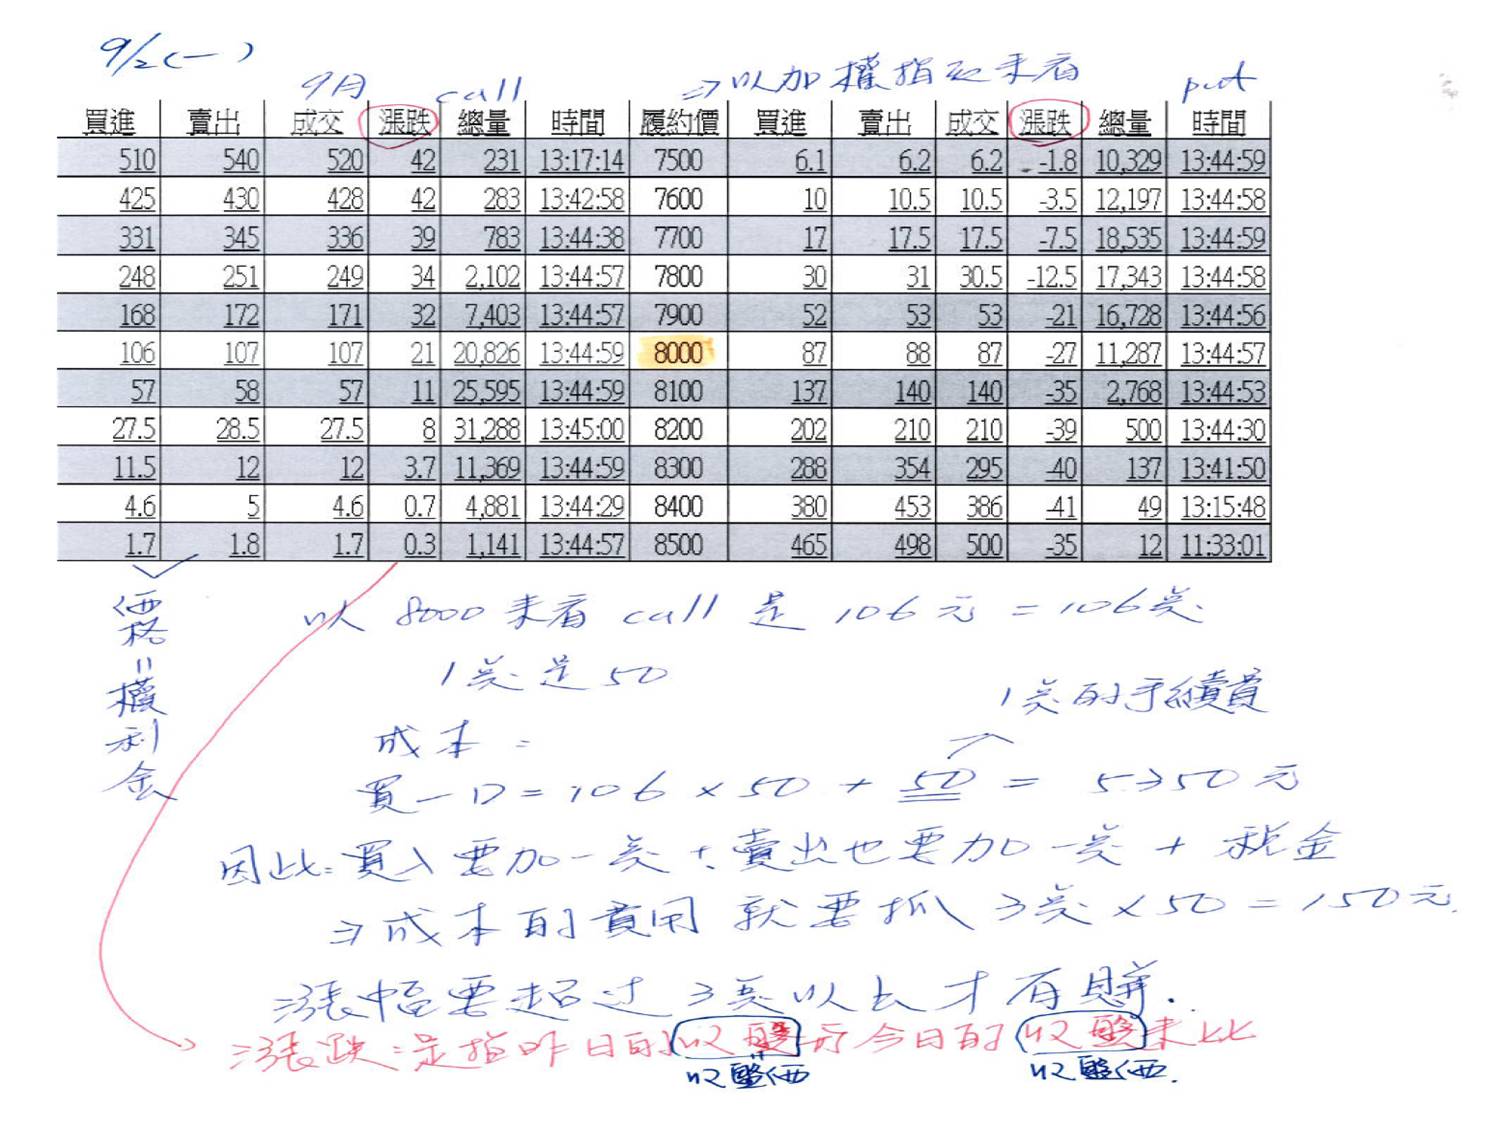 9/2(一)
9月 call ⇒以加權指數來看 put
買進 賣出 成交 漲跌 總量 時間 履約價 買進 賣出 成交 漲跌 總量 時間
510 540 520 42 231 13:17:14 7500 6.1 6.2 6.2 -1.8 10,329 13:44:59
425 430 428 42 283 13:42:58 7600 10 10.5 10.5 -3.5 12,197 13:44:58
331 345 336 39 783 13:44:38 7700 17 17.5 17.5 -7.5 18,535 13:44:59
248 251 249 34 2,102 13:44:57 7800 30 31 30.5 -12.5 17,343 13:44:58
168 172 171 32 7,403 13:44:57 7900 52 53 53 -21 16,728 13:44:56
106 107 107 21 20,826 13:44:59 8000 87 88 87 -27 11,287 13:44:57
57 58 57 11 25,595 13:44:59 8100 137 140 140 -35 2,768 13:44:53
27.5 28.5 27.5 8 31,288 13:45:00 8200 202 210 210 -39 500 13:44:30
11.5 12 12 3.7 11,369 13:44:59 8300 288 354 295 -40 137 13:41:50
4.6 5 4.6 0.7 4,881 13:44:29 8400 380 453 386 -41 49 13:15:48
1.7 1.8 1.7 0.3 1,141 13:44:57 8500 465 498 500 -35 12 11:33:01
価格=權利金
以 8000 來看 call 是 106元 = 106点
1点是 50
1点的手續費
成本 =
買一口 = 106 × 50 + 50 = 5350元
因此:買入要加一点+賣出也要加一点 + 稅金
⇒成本的費用就要抓 3点×50=150元.
漲幅要超过 3点以上才有賺.
漲跌:是指昨日的收盤与今日的收盤來比
收盤価 收盤価.